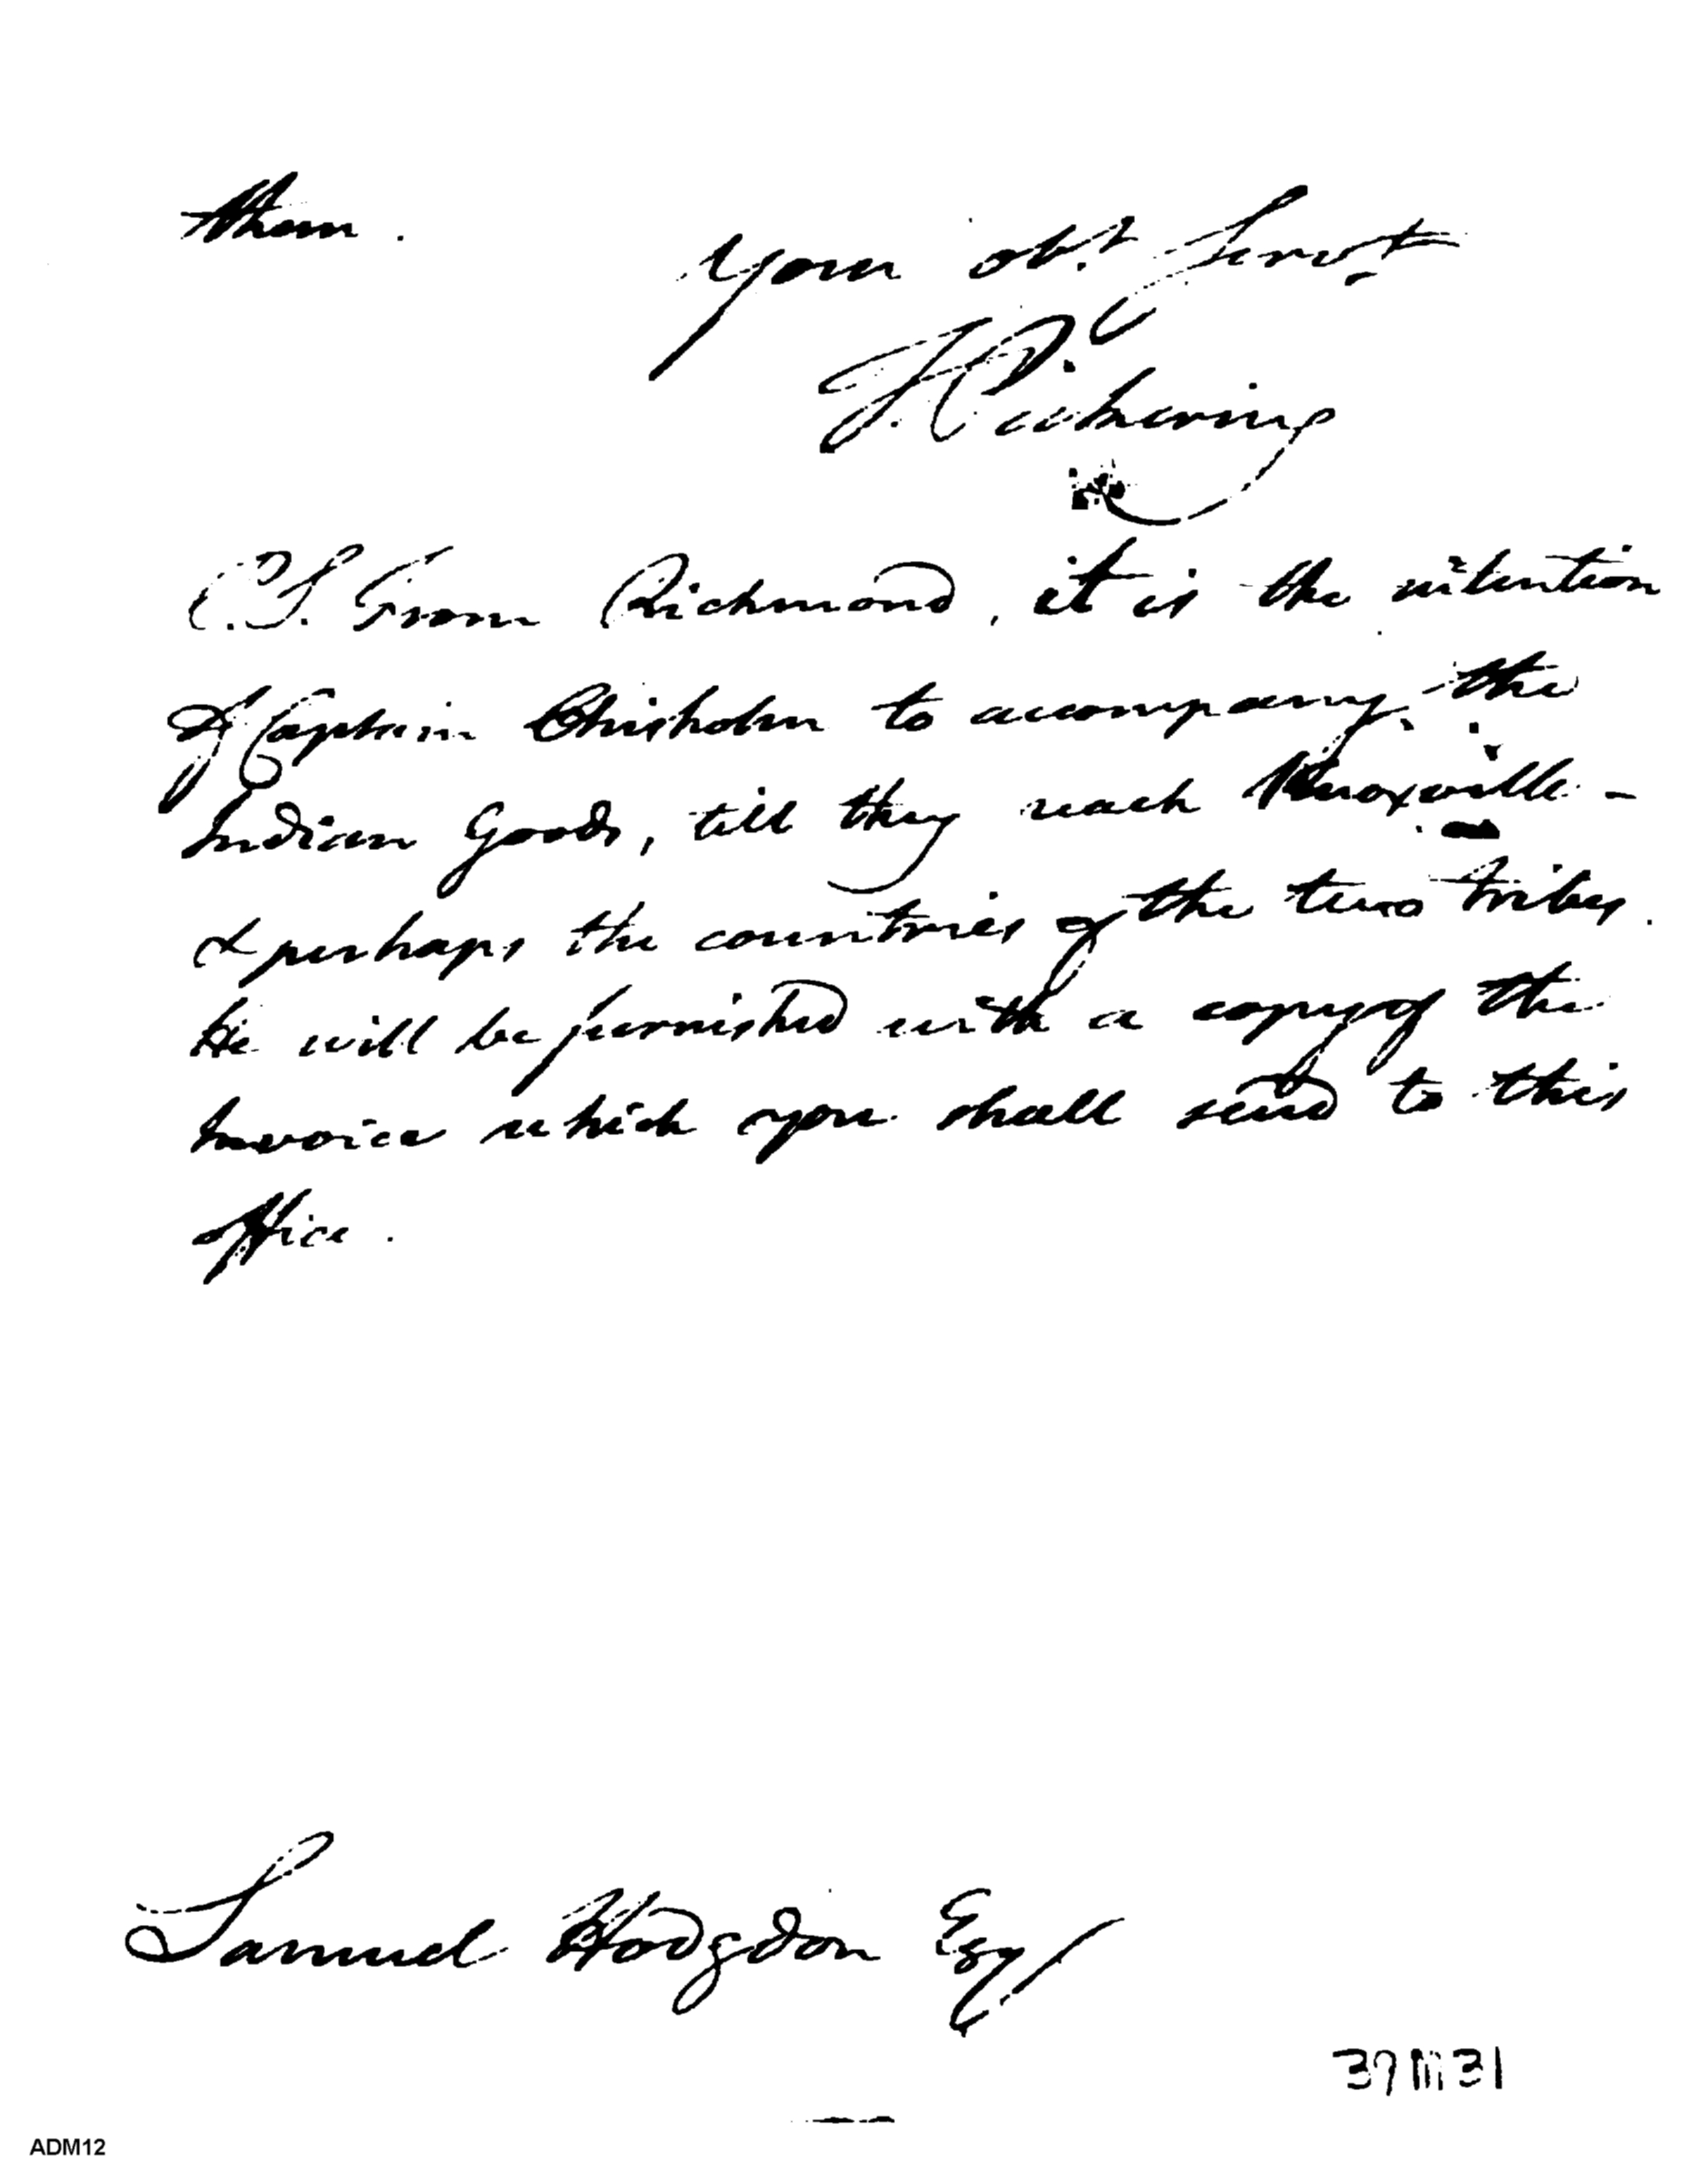 them.
Your obt. Servt.
T. Pickering
P.S. From Richmond, it is the intention
of Captain Chisholm to accompany the
Indian goods, till they reach Knoxville -
& perhaps the countries of the two tribes.
He will be furnished with a copy of the
Invoice which you shall send to this
office.
Samuel Hodgdon Esq
ADM12